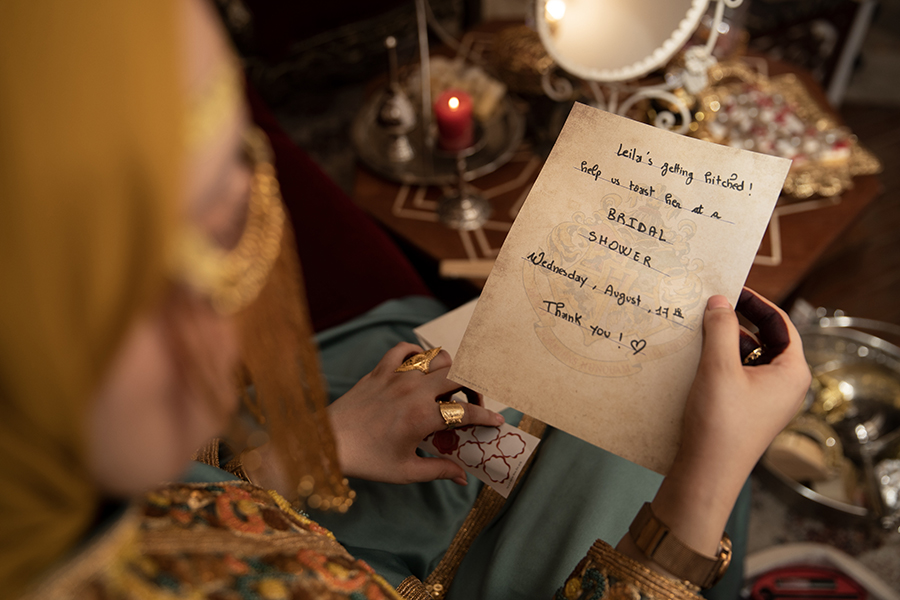 Leila's getting hitched!
help us toast her at a
BRIDAL
SHOWER
Wednesday, August, 17th
Thank you! ♡